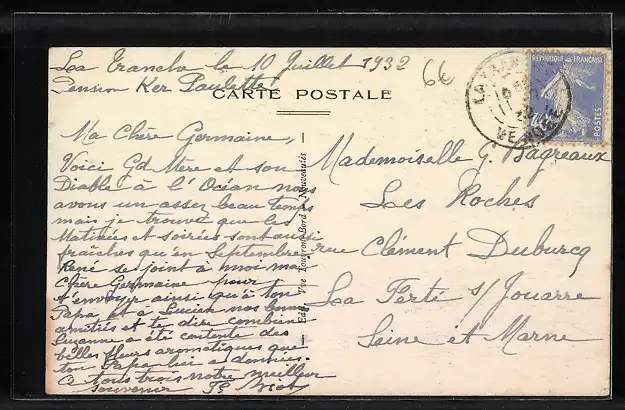 La Tranche le 10 Juillet 1932
Pension Ker Paulette
66
CARTE POSTALE
LA TRAN
VENDEE
REPUBLIQUE FRANÇAISE
POSTES
Ma Chère Germaine,
Voici Gd Mère et son
Diable à l'Océan nous
avons un assez beau temps
mais je trouve que les
Matinées et soirées sont aussi
fraîches qu'en Septembre
René se joint à moi ma
Chère Germaine pour
t'envoyer ainsi qu'à ton
Papa et à Lucien nos bonnes
amitiés et te dire combien
Suzanne a été contente des
belles fleurs aromatiques que
ton Papa lui a données.
A tous trois notre meilleur
souvenir
Edit. Vve Bord - Nouveautés
Mademoiselle G. Bagreaux
Les Roches
rue Clément Duburcq
La Ferté s/Jouarre
Seine et Marne